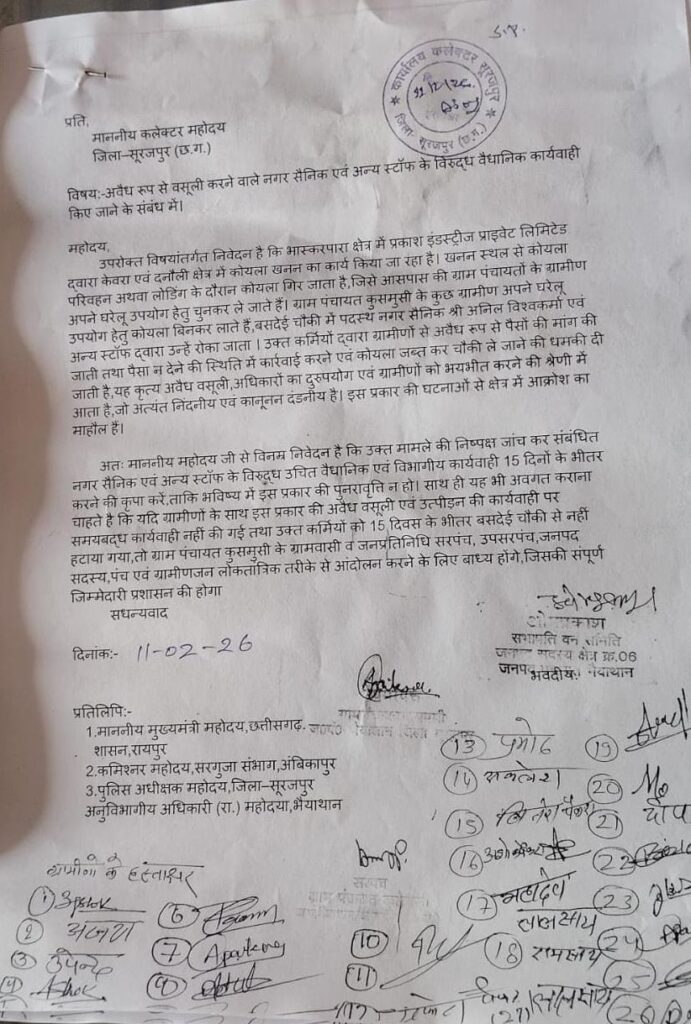 S.P.
कार्यालय कलेक्टर सूरजपुर
जिला- सूरजपुर (छ.ग.)
प्रति,
माननीय कलेक्टर महोदय
जिला–सूरजपुर (छ.ग.)
विषय:-अवैध रूप से वसूली करने वाले नगर सैनिक एवं अन्य स्टॉफ के विरुद्ध वैधानिक कार्यवाही
किए जाने के संबंध में।
महोदय,
उपरोक्त विषयांतर्गत निवेदन है कि भास्करपारा क्षेत्र में प्रकाश इंडस्ट्रीज प्राइवेट लिमिटेड
द्वारा केवरा एवं दनौली क्षेत्र में कोयला खनन का कार्य किया जा रहा है। खनन स्थल से कोयला
परिवहन अथवा लोडिंग के दौरान कोयला गिर जाता है,जिसे आसपास की ग्राम पंचायतों के ग्रामीण
अपने घरेलू उपयोग हेतु चुनकर ले जाते हैं। ग्राम पंचायत कुसमुसी के कुछ ग्रामीण अपने घरेलू
उपयोग हेतु कोयला बिनकर लाते हैं,बसदेई चौकी में पदस्थ नगर सैनिक श्री अनिल विश्वकर्मा एवं
अन्य स्टॉफ द्वारा उन्हें रोका जाता । उक्त कर्मियों द्वारा ग्रामीणों से अवैध रूप से पैसों की मांग की
जाती तथा पैसा न देने की स्थिति में कार्रवाई करने एवं कोयला जब्त कर चौकी ले जाने की धमकी दी
जाती है,यह कृत्य अवैध वसूली,अधिकारों का दुरुपयोग एवं ग्रामीणों को भयभीत करने की श्रेणी में
आता है,जो अत्यंत निंदनीय एवं कानूनन दंडनीय है। इस प्रकार की घटनाओं से क्षेत्र में आक्रोश का
माहौल हैं।
अतः माननीय महोदय जी से विनम्र निवेदन है कि उक्त मामले की निष्पक्ष जांच कर संबंधित
नगर सैनिक एवं अन्य स्टॉफ के विरुद्ध उचित वैधानिक एवं विभागीय कार्यवाही 15 दिनों के भीतर
करने की कृपा करें,ताकि भविष्य में इस प्रकार की पुनरावृत्ति न हो। साथ ही यह भी अवगत कराना
चाहते है कि यदि ग्रामीणों के साथ इस प्रकार की अवैध वसूली एवं उत्पीड़न की कार्यवाही पर
समयबद्ध कार्यवाही नहीं की गई तथा उक्त कर्मियों को 15 दिवस के भीतर बसदेई चौकी से नहीं
हटाया गया,तो ग्राम पंचायत कुसमुसी के ग्रामवासी व जनप्रतिनिधि सरपंच, उपसरपंच,जनपद
सदस्य,पंच एवं ग्रामीणजन लोकतांत्रिक तरीके से आंदोलन करने के लिए बाध्य होंगे,जिसकी संपूर्ण
जिम्मेदारी प्रशासन की होगा
सधन्यवाद
दिनांक:- 11-02-26
ओमप्रकाश
सभापति वन समिति
जनपद सदस्य क्षेत्र क्र.06
भवदीय
प्रतिलिपि:-
1.माननीय मुख्यमंत्री महोदय,छत्तीसगढ़
शासन,रायपुर
2.कमिश्नर महोदय,सरगुजा संभाग,अंबिकापुर
3.पुलिस अधीक्षक महोदय,जिला–सूरजपुर
अनुविभागीय अधिकारी (रा.) महोदया,भैयाथान
ग्रामीणों के हस्ताक्षर
सरपंच
① ② अजय ③ उपेन्द्र ④ Ashok
⑥ ⑦ ⑧
⑩ ⑪
⑬ प्रमोद
⑭
⑮
⑯
⑰ महादेव
लालसाय
⑱ रामसाय
⑲
⑳
㉑ दीप
㉒
㉓
㉔
㉕
㉖
(27) लालसाय